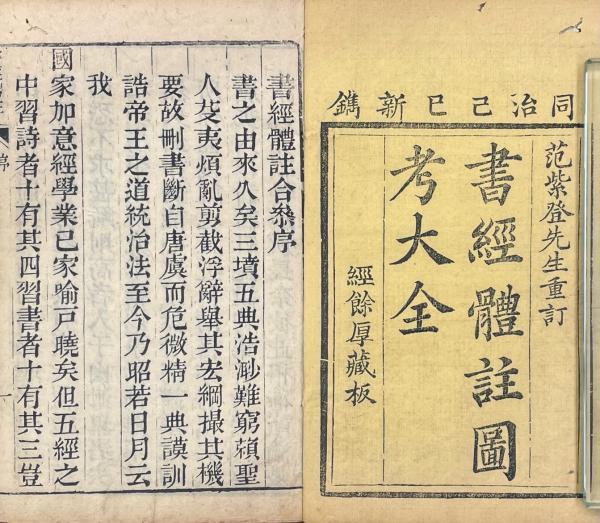 同治己巳新鐫
范紫登先生重訂
書經體註圖
考大全
經餘厚藏板
書經體註合叅序
書之由來久矣三墳五典浩渺難窮賴聖
人芟夷煩亂剪截浮辭舉其宏綱撮其機
要故刪書斷自唐虞而危微精一典謨訓
誥帝王之道統治法至今乃昭若日月云
我
國家加意經學業已家喻戸曉矣但五經之
中習詩者十有其四習書者十有其三豈
序
一